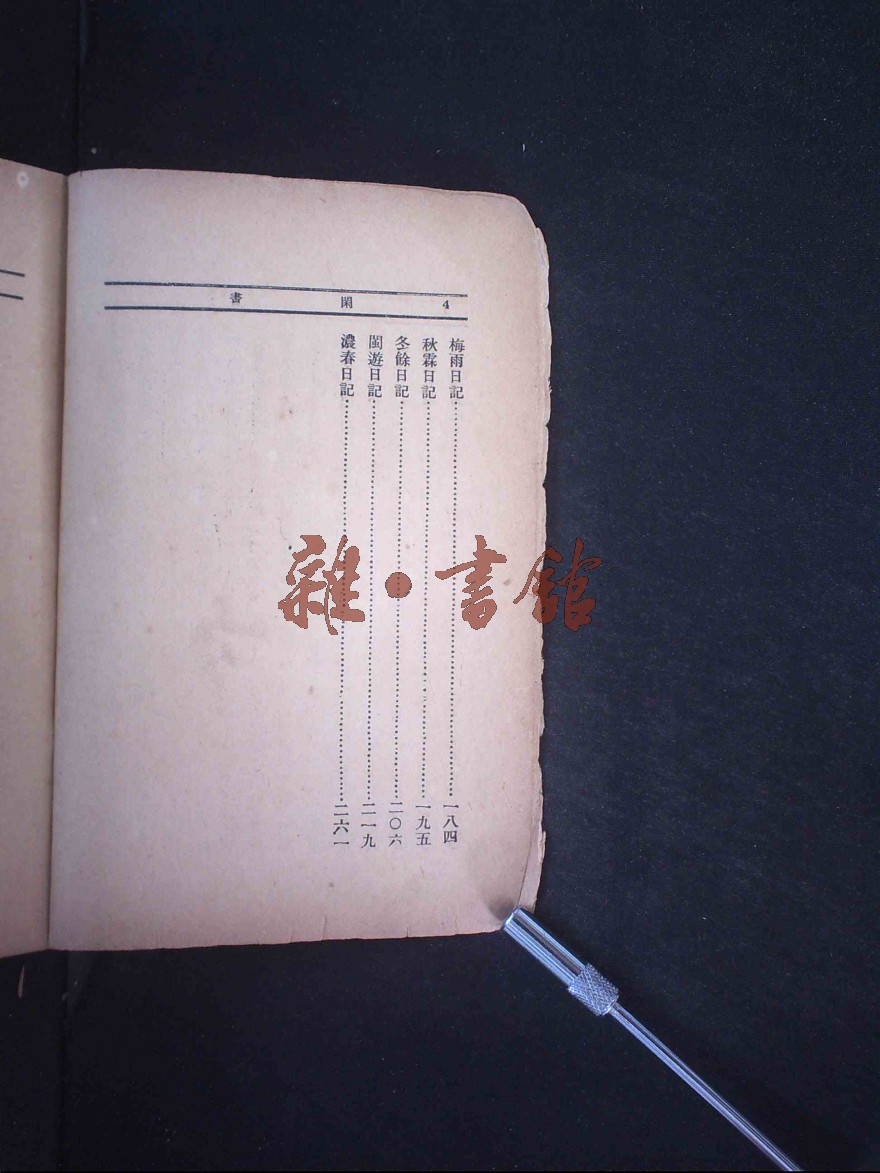 4 閑書
梅雨日記……一八四
秋霖日記……一九五
冬餘日記……二〇六
閩遊日記……二一九
濃春日記……二六一
雜·書館